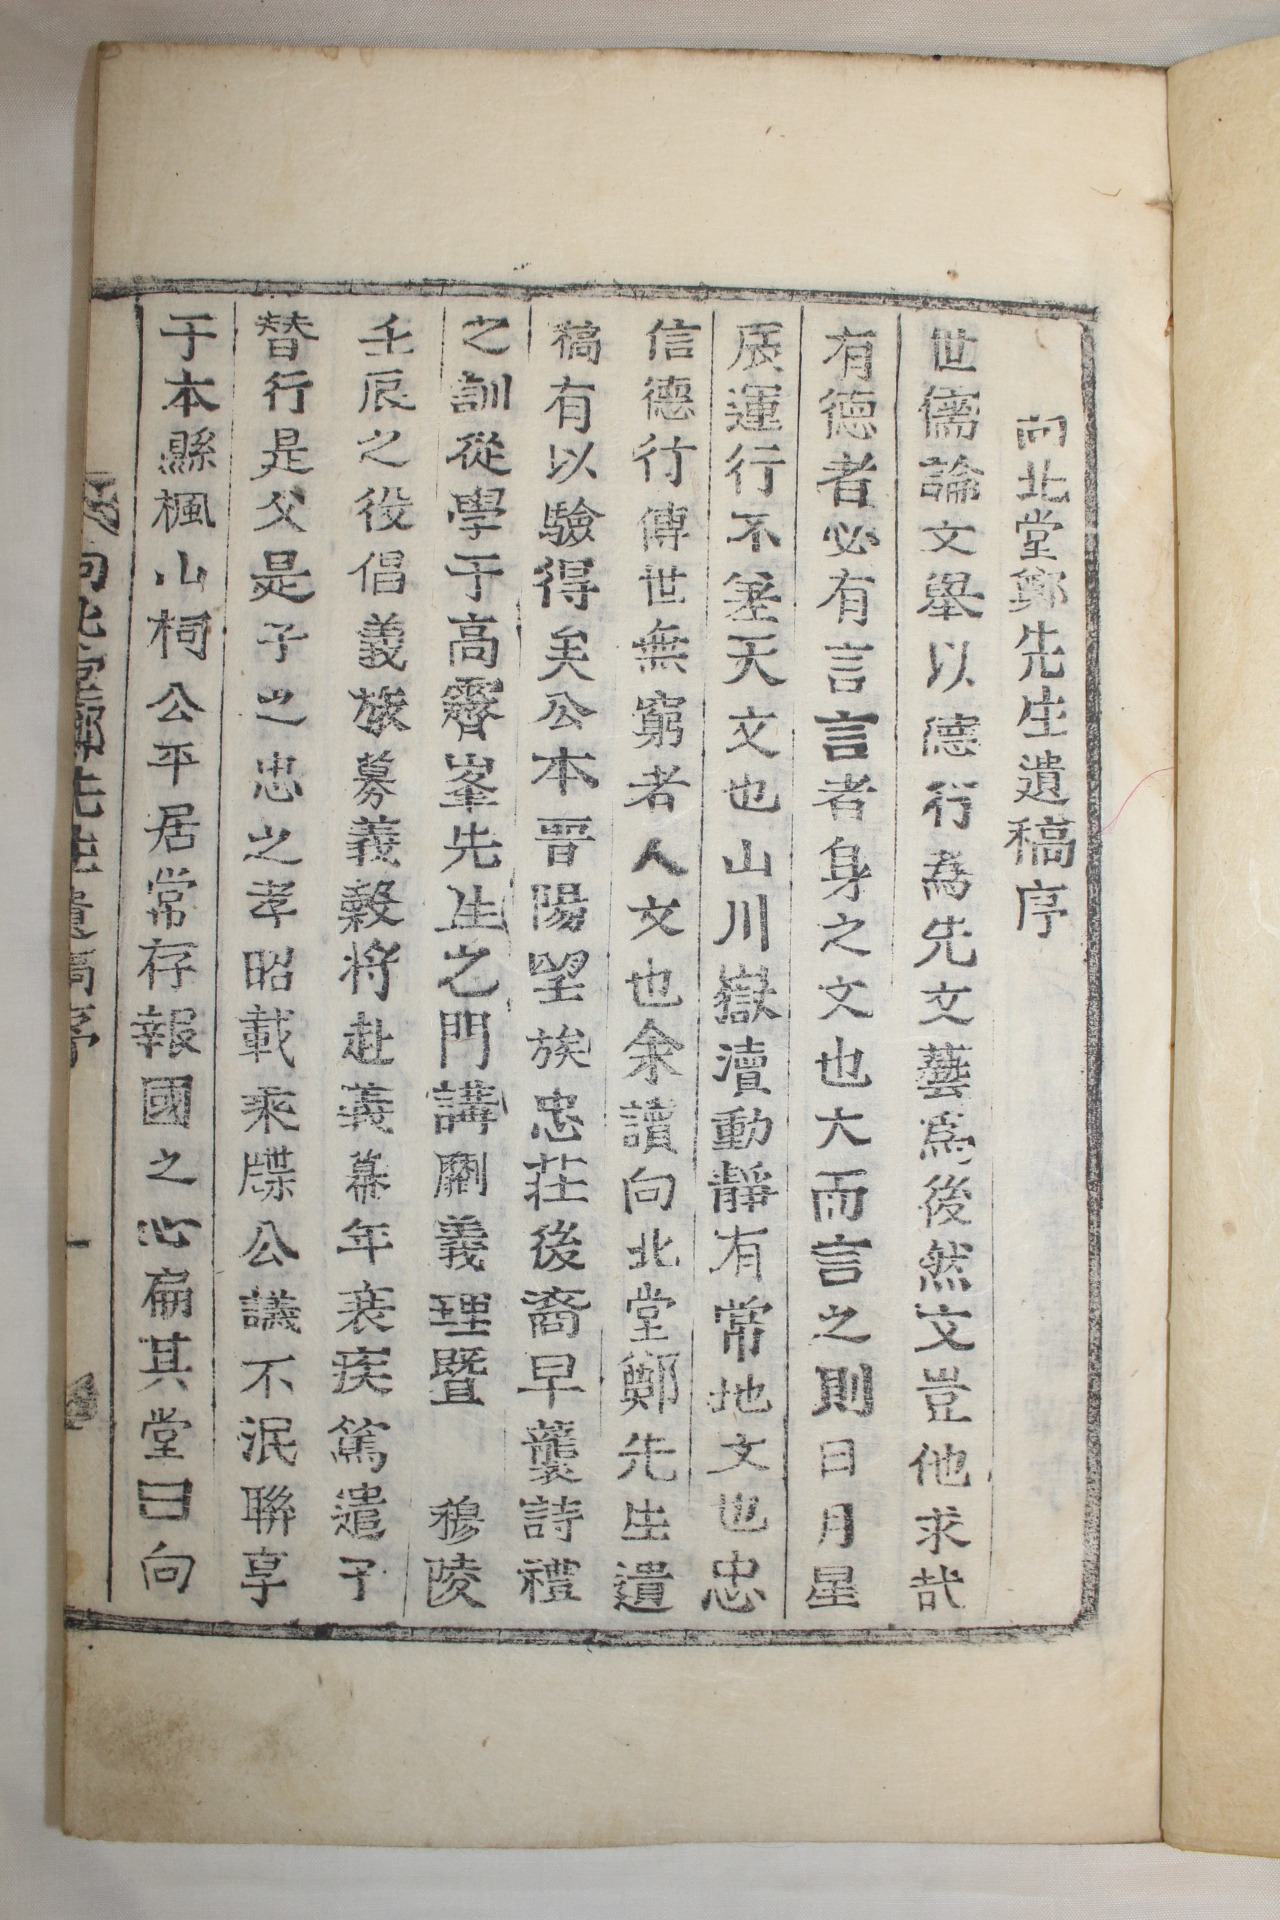 向北堂鄭先生遺稿序
世儒論文舉以德行為先文藝爲後然文豈他求哉
有德者必有言言者身之文也大而言之則日月星
辰運行不差天文也山川嶽瀆動靜有常地文也忠
信德行傳世無窮者人文也余讀向北堂鄭先生遺
稿有以驗得矣公本晋陽望族忠莊後裔早襲詩禮
之訓從學于高霽峯先生之門講劘義理暨 穆陵
壬辰之役倡義旅募義穀將赴義幕年衰疾篤遣子
替行是父是子之忠之孝昭載乘牒公議不泯聯享
于本縣楓山祠公平居常存報國之心扁其堂曰向
向北堂鄭先生遺稿序
一